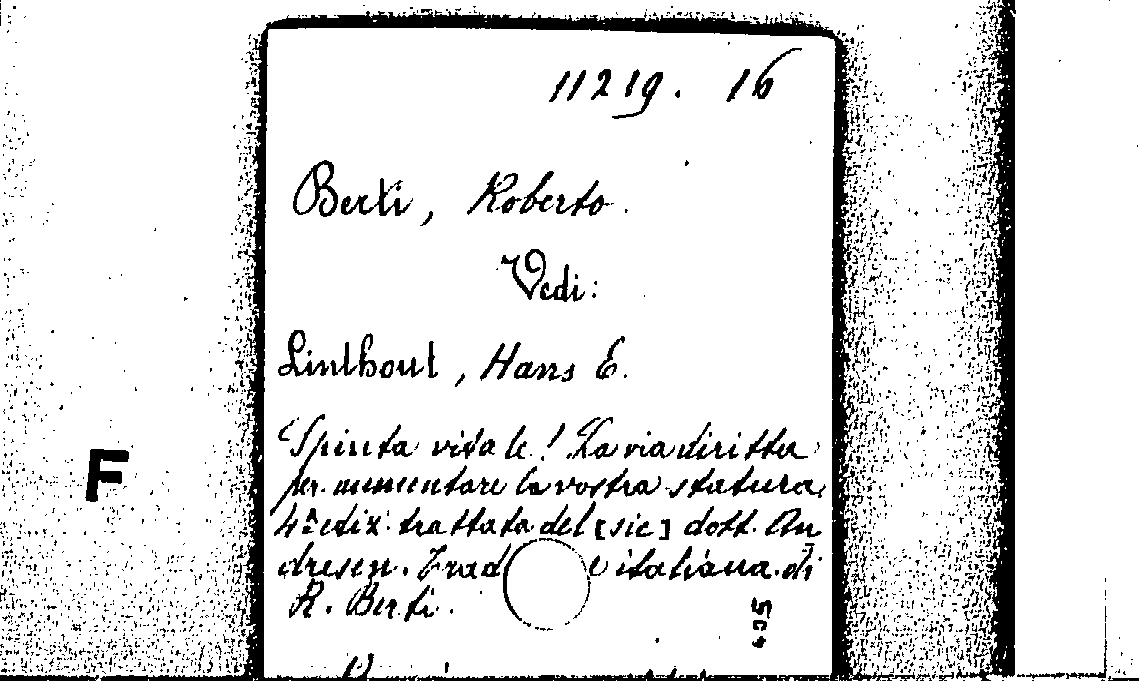 11219. 16
Berti, Roberto.
Vedi:
Linthout, Hans E.
Spinta vitale! La via diritta
per aumentare la vostra statura,
4ª ediz. trattata del [sic] dott. An
dresen. Trad e italiana di
F
R. Berti.